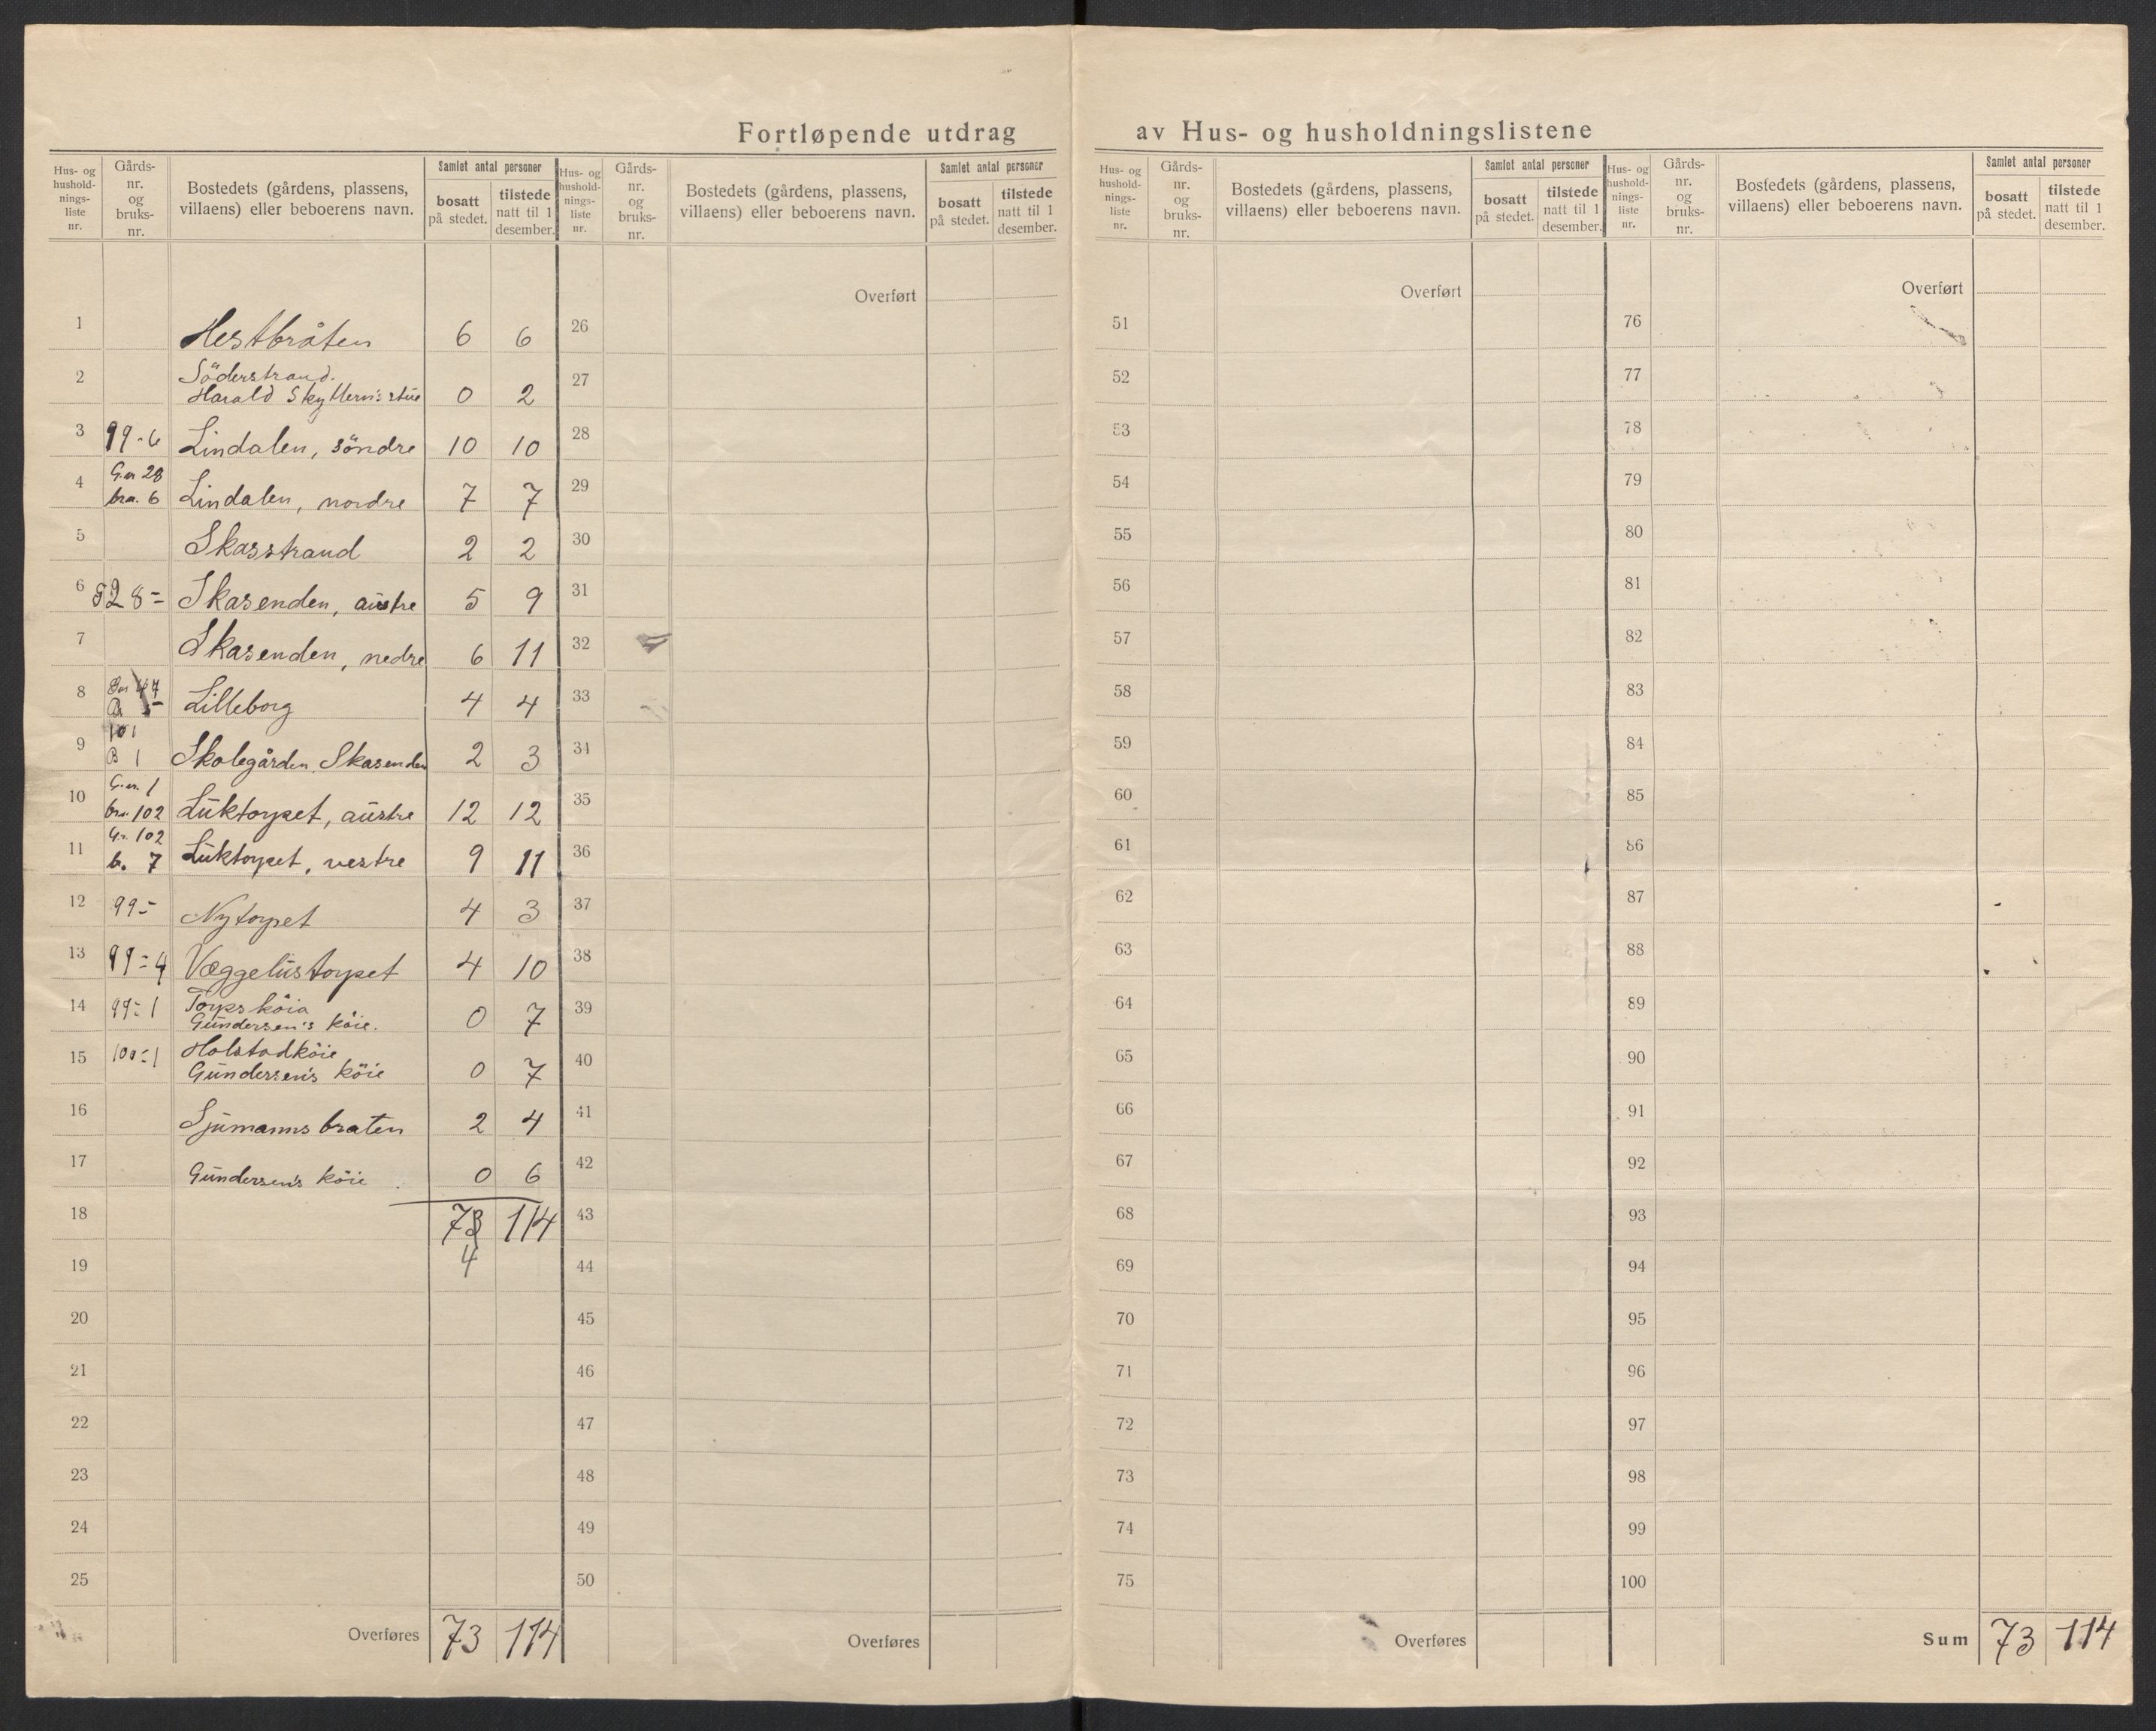 Fortløpende utdrag av Hus- og husholdningslistene
Hus- og hushold-nings-liste nr.
Gårds-nr. og bruks-nr.
Bostedets (gårdens, plassens, villaens) eller beboerens navn.
Samlet antal personer
bosatt på stedet.
tilstede natt til 1 desember.
Hus- og hushold-nings-liste nr.
Gårds-nr. og bruks-nr.
Bostedets (gårdens, plassens, villaens) eller beboerens navn.
Samlet antal personer
bosatt på stedet.
tilstede natt til 1 desember.
Hus- og hushold-nings-liste nr.
Gårds-nr. og bruks-nr.
Bostedets (gårdens, plassens, villaens) eller beboerens navn.
Samlet antal personer
bosatt på stedet.
tilstede natt til 1 desember.
Hus- og hushold-nings-liste nr.
Gårds-nr. og bruks-nr.
Bostedets (gårdens, plassens, villaens) eller beboerens navn.
Samlet antal personer
bosatt på stedet.
tilstede natt til 1 desember.
1 Hestbråten 6 6
2 Söderstrand.
Harald Skyttern's stue 0 2
3 99-6 Lindalen, söndre 10 10
4 G.nr 28
brn. 6 Lindalen, nordre 7 7
5 Skasstrand 2 2
6 28- Skasenden, austre 5 9
7 Skasenden, nedre 6 11
8 Lilleborg 4 4
9 101
B 1 Skolegården, Skasenden 2 3
10 G.nr. 1
brn. 102 Luktorpet, austre 12 12
11 Gr. 102
b. 7 Luktorpet, vestre 9 11
12 99- Nytorpet 4 3
13 99-4 Væggelustorpet 4 10
14 99-1 Torpsköia
Gundersen's köie. 0 7
15 100-1 Holstadköie
Gundersen's köie 0 7
16 Sjumannsbraten 2 4
17 Gundersen's köie 0 6
18 73 114
4
19
20
21
22
23
24
25
Overføres 73 114
Overført
26
27
28
29
30
31
32
33
34
35
36
37
38
39
40
41
42
43
44
45
46
47
48
49
50
Overføres
Overført
51
52
53
54
55
56
57
58
59
60
61
62
63
64
65
66
67
68
69
70
71
72
73
74
75
Overføres
Overført
76
77
78
79
80
81
82
83
84
85
86
87
88
89
90
91
92
93
94
95
96
97
98
99
100
Sum 73 114